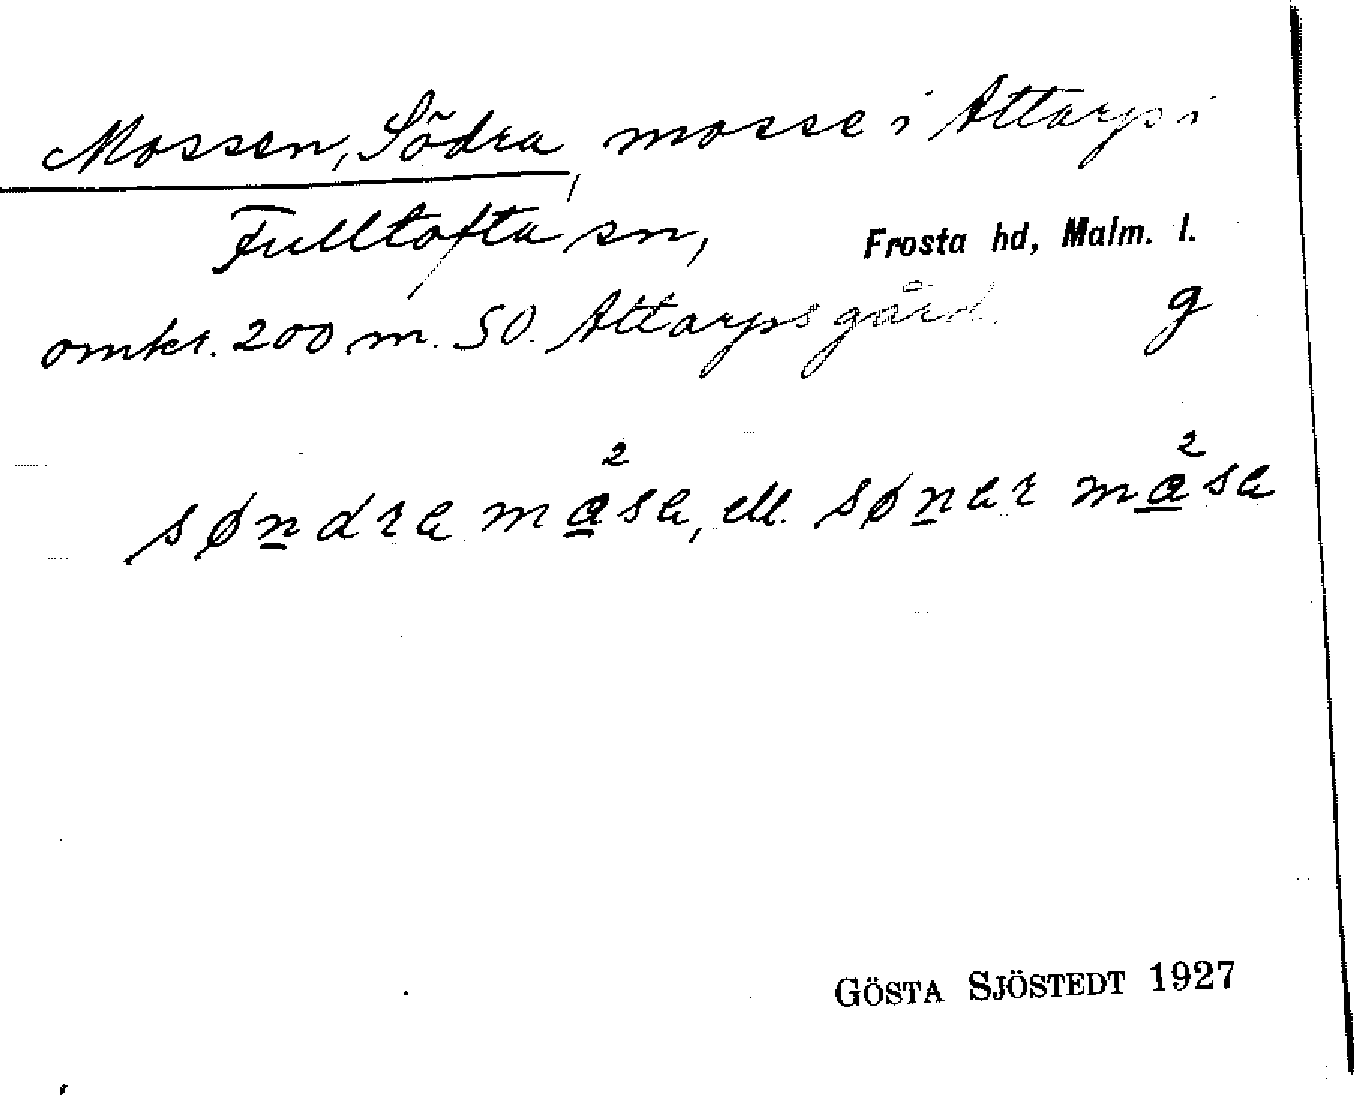 Mossen, Södra, mosse i Attarps i
Fulltofta sn, Frosta hd, Malm. l.
omkr. 200 m. SO. Attarps gård. g
søndra måsa, ell. sønar måsa
GÖSTA SJÖSTEDT 1927